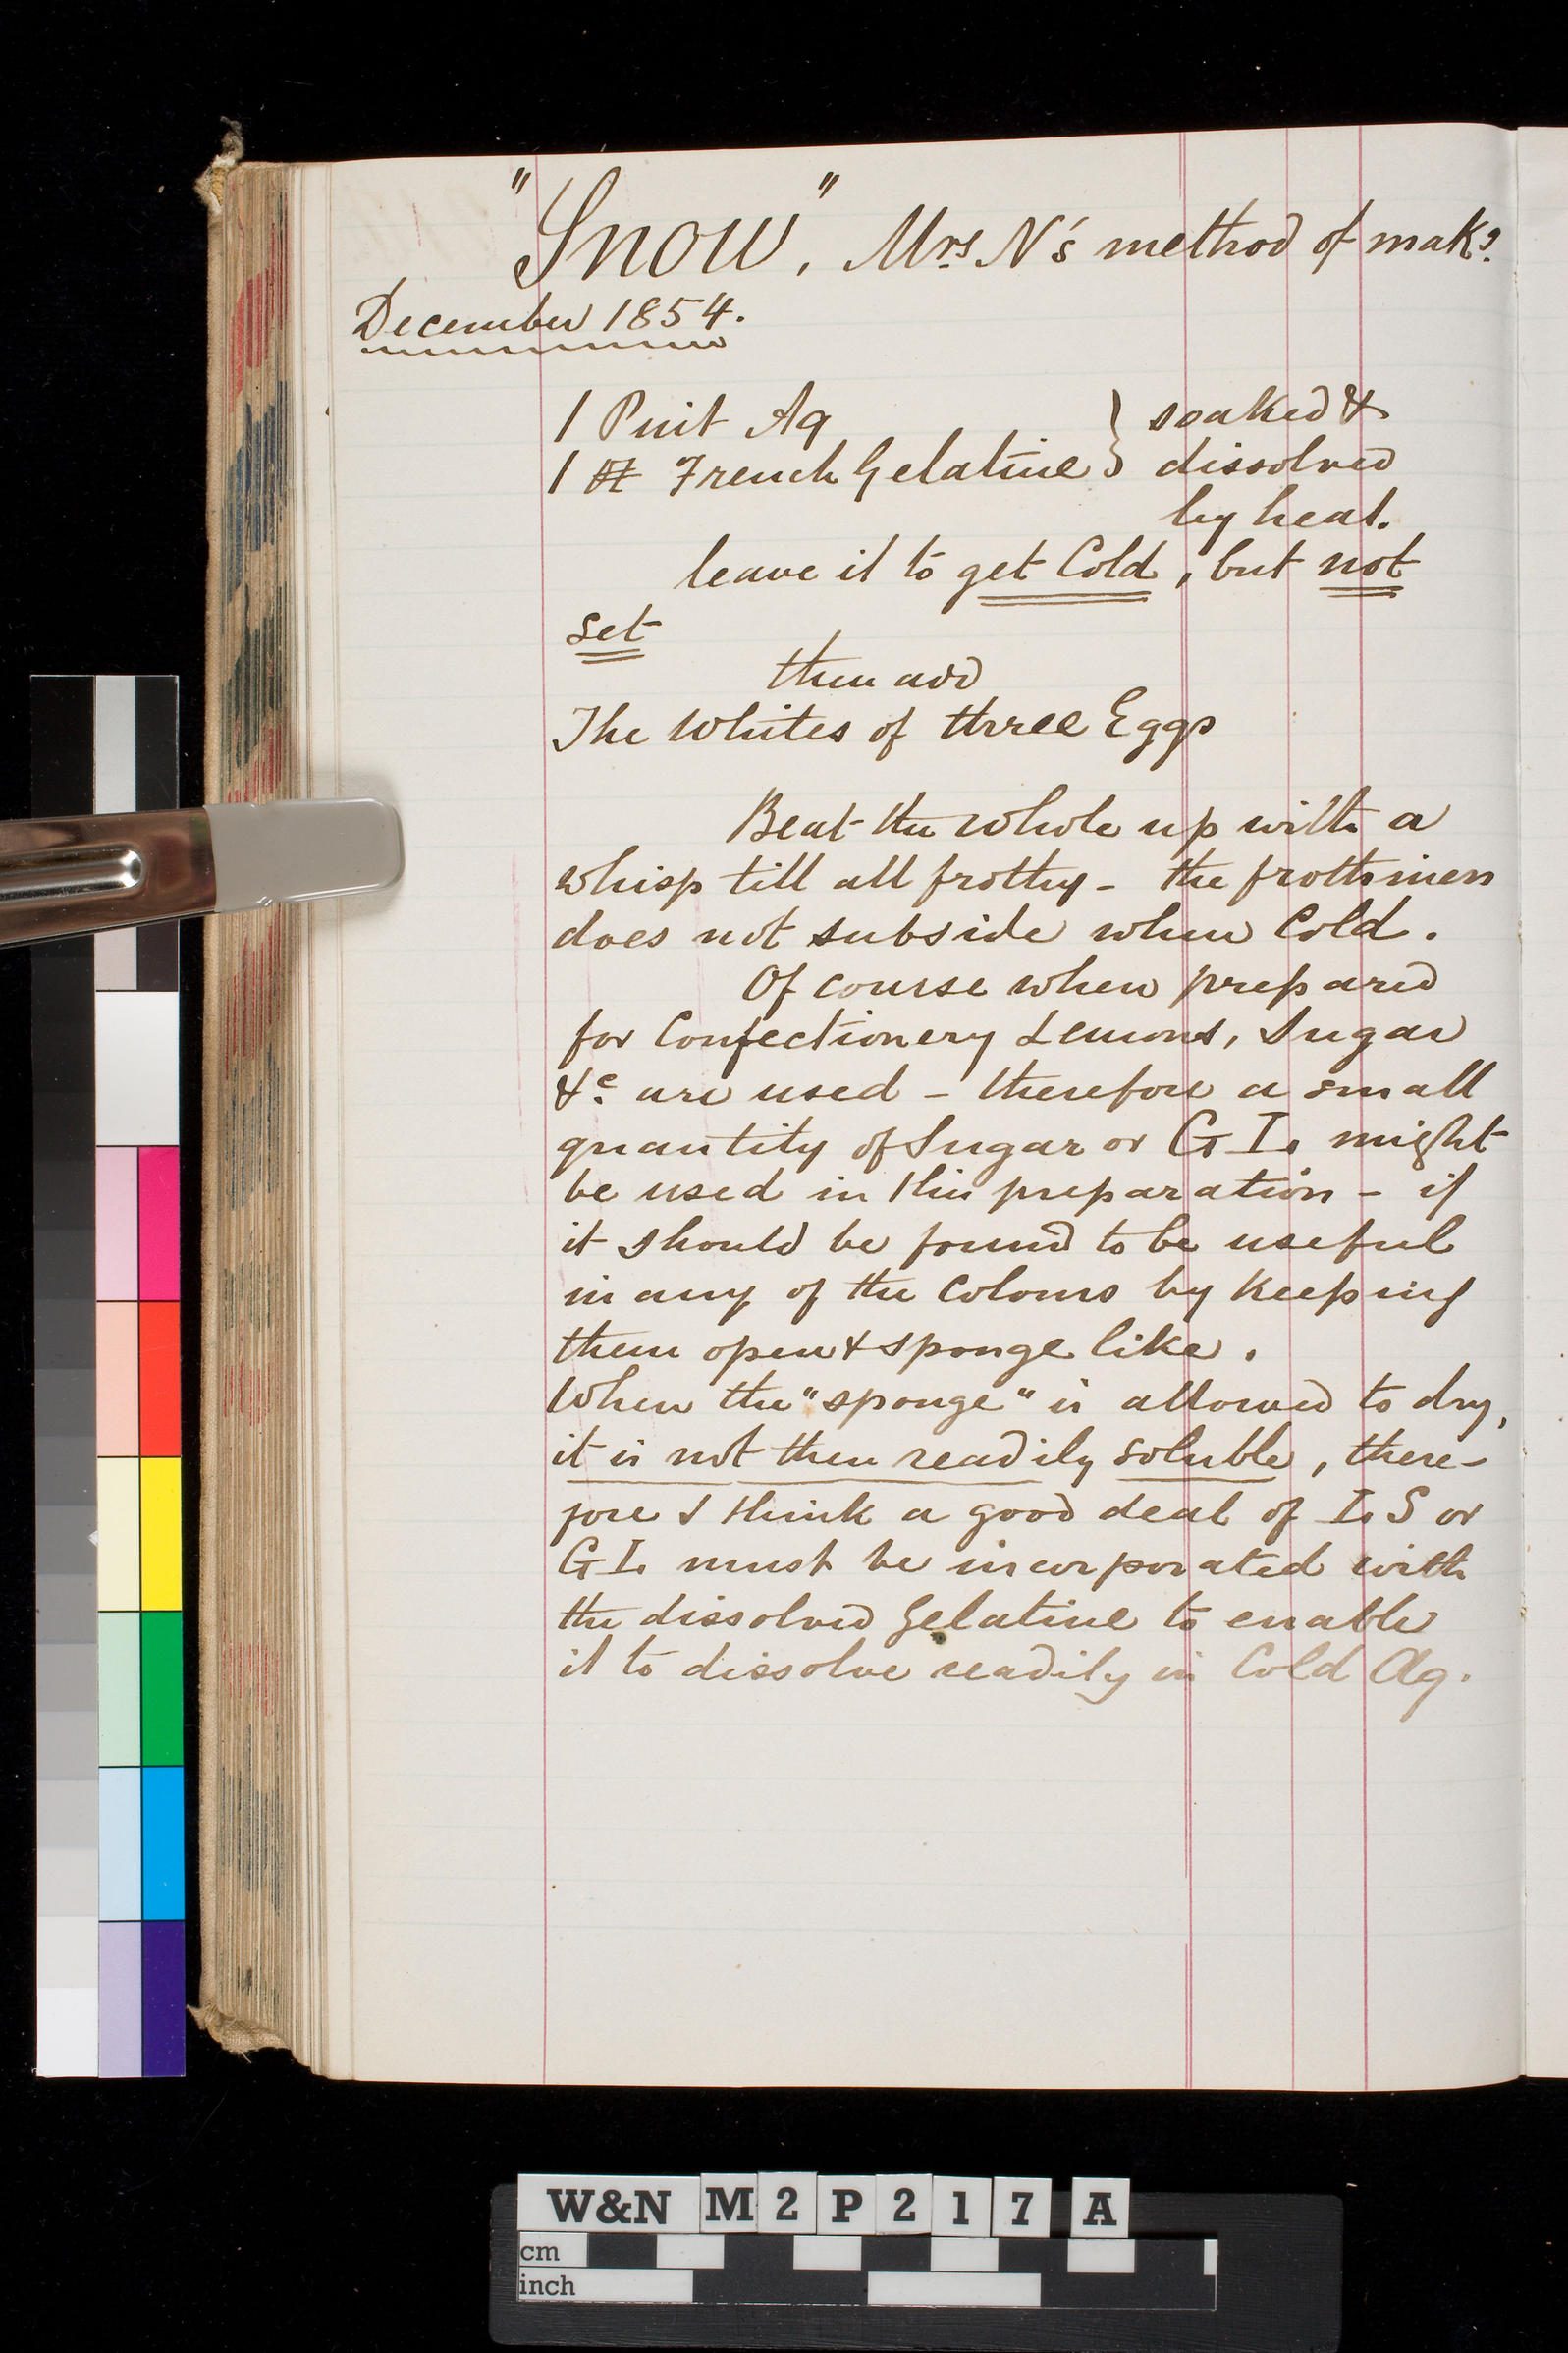 "Snow", Mrs N's method of makg.
December 1854.
1 Pint Aq } soaked &
1 ℔ French Gelatine } dissolved
by heat.
leave it to get Cold, but not
set
then add
The Whites of three Eggs
Beat the whole up with a
whisp till all frothy - the frothiness
does not subside when Cold.
Of course when prepared
for Confectionery Lemons, Sugar
&c are used - therefore a small
quantity of Sugar or G I. might
be used in this preparation - if
it should be found to be useful
in any of the Colours by keeping
them open & sponge like.
When the "sponge" is allowed to dry,
it is not then readily soluble, there-
fore I think a good deal of I. S or
G I. must be incorporated with
the dissolved Gelatine to enable
it to dissolve readily in Cold Aq.
W&N M2P217A
cm
inch